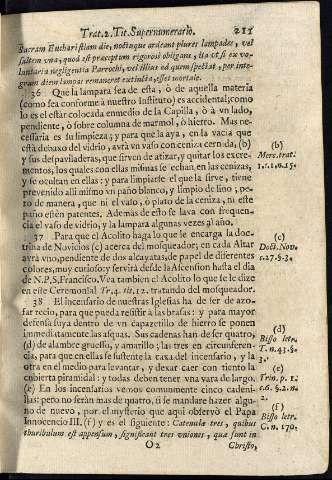 Trat. 2. Tit. Supernumerario. 211
Sacram Eucharistiam die, noctuque ardeant plures lampades, vel
saltem vna, quod est præceptum rigorosi obligans, ita vt si ex vo-
luntaria negligentia Parrochi, vel illius ad quem spectat, per inte-
gram diem lampas remaneret extincta, esset mortale.
36 Que la lampara sea de esta, ò de aquella materia
(como sea conforme à nuestro Instituto) es accidental; como
lo es el estar colocada enmedio de la Capilla, ò à vn lado,
pendiente, ò sobre columna de marmol, ò hierro. Mas ne-
cessaria es su limpieza; y para que la aya, en la vacia que
està debaxo del vidro, avrà vn vaso con ceniza cernida, (b)
y sus despaviladeras, que sirven de atizar, y quitar los excre-
mentos, los quales con ellas mismas se echan en las cenizas,
y se ocultan en ellas: y para limpiarse el que la sirve, tiene
prevenido alli mismo vn paño blanco, y limpio de lino; pe-
ro de manera, que ni el vaso, ò plato de la ceniza, ni este
paño estèn patentes. Ademàs de esto se lava con frequen-
cia el vaso de vidrio, y la lampara algunas vezes al año.
37 Para que el Acolito haga lo que se encarga la doc-
trina de Novicios (c) acerca del mosqueador; en cada Altar
avrà vno, pendiente de dos alcayatas, de papel de diferentes
colores, muy curioso: y servirà desde la Ascension hasta el dia
de N.P.S. Francisco. Vea tambien el Acolito lo que se le dize
en este Ceremonial Tr. 4. tit. 12. tratando del mosqueador.
38 El incensario de nuestras Iglesias ha de ser de azo-
far recio, para que pueda resistir a las brasas: y para mayor
defensa suya dentro de vn capazetillo de hierro se ponen
immediatamente las asquas. Sus cadenas han de ser quatro,
(d) de alambre gruesso, y amarillo; las tres en circunferen-
cia, para que en ellas se sustente la caxa del incensario, y la
otra en el medio para levantar, y dexar caer con tiento la
cubierta piramidal: y todas deben tener vna vara de largo.
(e) En los incensarios vemos comunmente cinco cadeni-
llas: pero no seràn mas de quatro, si se mandare hazer algu-
no de nuevo, por el mysterio que aqui observò el Papa
Innocencio III. (f) y es el siguiente: Catenulæ tres, quibus
thuribulum est appensum, significant tres vniones, quæ sunt in
O 2 Christo,
(b)
Merc. trat.
1. n. 15.
(c)
Doct. Nov.
c. 27. §. 3.
(d)
Bisso letr.
T. n. 43. §.
3.
(e)
Trin. p. 1.
c. 6. §. 2. n.
2.
(f)
Bisso letr.
C. n. 170.